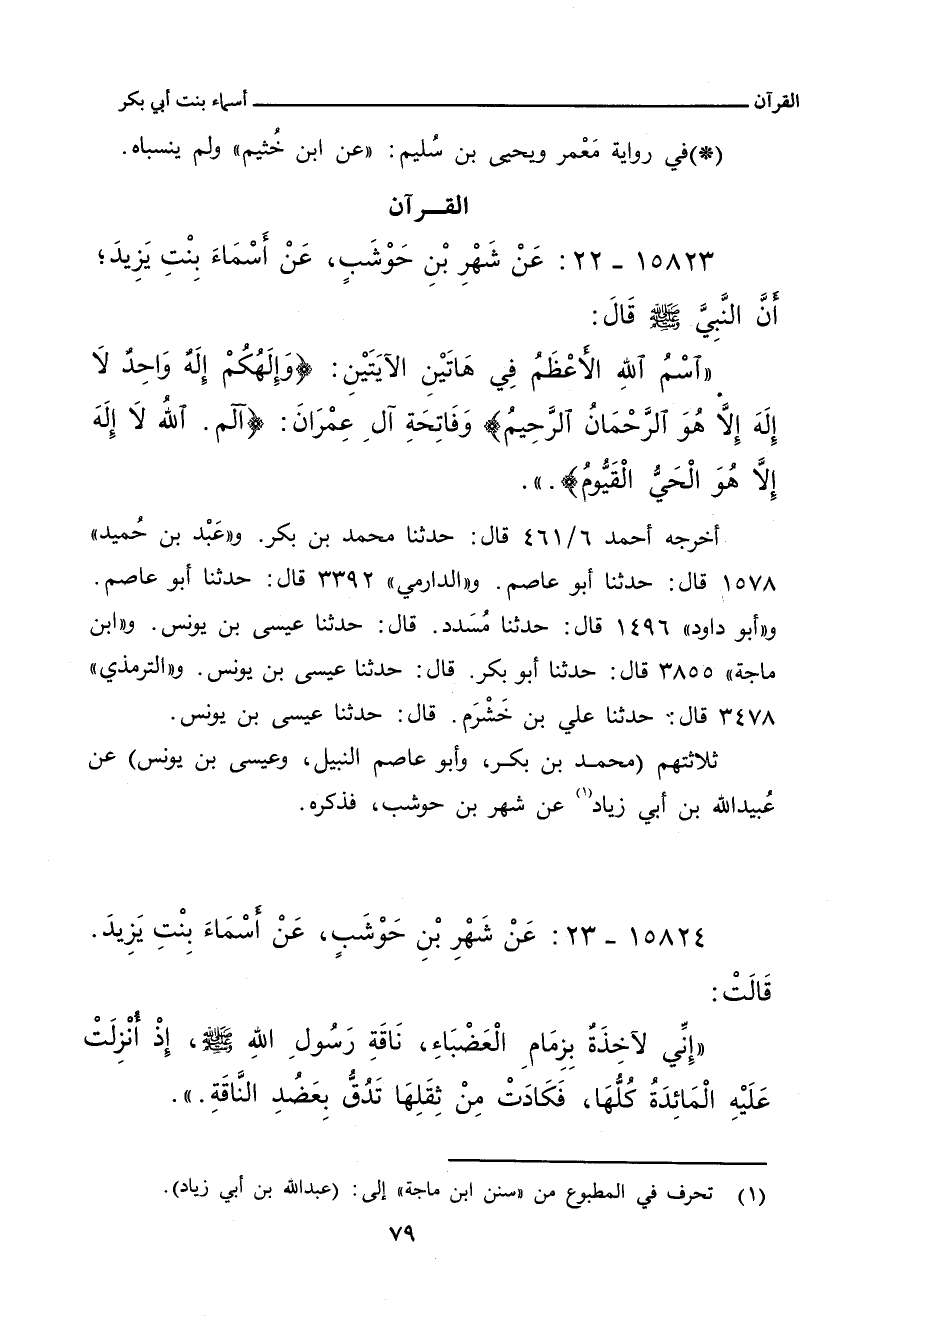 القرآن ــــــــ أسماء بنت أبي بكر
(*)في رواية مَعْمر ويحيى بن سُليم: «عن ابن خُثيم» ولم ينسباه.
القـــرآن
١٥٨٢٣ ـ ٢٢: عَنْ شَهْرِ بْنِ حَوْشَبٍ، عَنْ أَسْمَاءَ بِنْتِ يَزِيدَ؛
أَنَّ النَّبِيَّ ﷺ قَالَ:
«ٱسْمُ ٱللهِ الأَعْظَمُ فِي هَاتَيْنِ الآيَتَيْنِ: ﴿وَإِلَهُكُمْ إِلَهٌ وَاحِدٌ لَا
إِلَهَ إِلَّا هُوَ ٱلرَّحْمَانُ ٱلرَّحِيمُ﴾ وَفَاتِحَةِ آلِ عِمْرَانَ: ﴿آلٓم. ٱللهُ لَا إِلَهَ
إِلَّا هُوَ الْحَيُّ الْقَيُّومُ﴾.».
أخرجه أحمد ٦/٤٦١ قال: حدثنا محمد بن بكر. و«عَبْد بن حُميد»
١٥٧٨ قال: حدثنا أبو عاصم. و«الدارمي» ٣٣٩٢ قال: حدثنا أبو عاصم.
و«أبو داود» ١٤٩٦ قال: حدثنا مُسَدد. قال: حدثنا عيسى بن يونس. و«ابن
ماجة» ٣٨٥٥ قال: حدثنا أبو بكر. قال: حدثنا عيسى بن يونس. و«الترمذي»
٣٤٧٨ قال: حدثنا علي بن خَشْرَم. قال: حدثنا عيسى بن يونس.
ثلاثتهم (محمـد بن بكـر، وأبو عاصم النبيل، وعيسى بن يونس) عن
عُبيدالله بن أبي زياد(١) عن شهر بن حوشب، فذكره.
١٥٨٢٤ ـ ٢٣: عَنْ شَهْرِ بْنِ حَوْشَبٍ، عَنْ أَسْمَاءَ بِنْتِ يَزِيدَ.
قَالَتْ:
«إِنِّي لآخِذَةٌ بِزِمَامِ الْعَضْبَاءِ، نَاقَةِ رَسُولِ اللهِ ﷺ، إِذْ أُنْزِلَتْ
عَلَيْهِ الْمَائِدَةُ كُلُّهَا، فَكَادَتْ مِنْ ثِقَلِهَا تَدُقُّ بِعَضُدِ النَّاقَةِ.».
(١) تحرف في المطبوع من «سنن ابن ماجة» إلى: (عبدالله بن أبي زياد).
٧٩